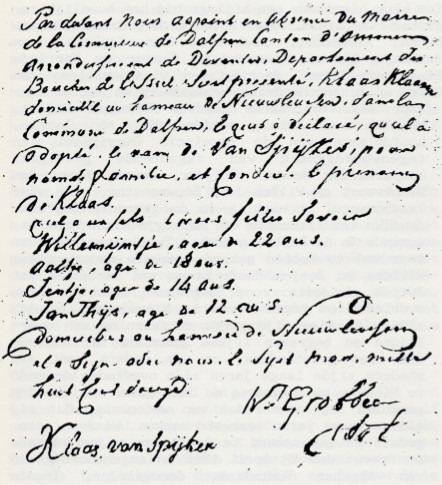 Par devant Nous adjoint en Absence du Maire
de la Commune de Dalfsen Canton d'Ommen
Arrondissement de Deventer, Departement des
Bouches de l'Issel, S'est presenté, Klaas Klaasz
domicilié au hameau de Nieuwleusen, dans la
Commune de Dalfsen, Lequel a declaré, qu'il a
adopté le nom de Van Spijker, pour
nom de famille, et conserve le prenom
de Klaas.
qu'il a un fils trois filles Savoir
Willemijntje, agee de 22 ans.
Aaltje, age de 18 ans.
Jentje, agee de 14 ans.
Jan Thijs, age de 12 ans.
domicilies au hameau de Nieuwleusen
et a Signé avec nous, le Sept mars, mille
huit Cent douze.
Klaas van Spijker